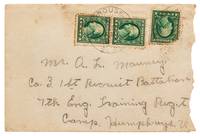 Mr. A. L. Mauney
Co. 3 1st Recruit Battalion
7th Eng. Training Regt
Camp, Humphreys